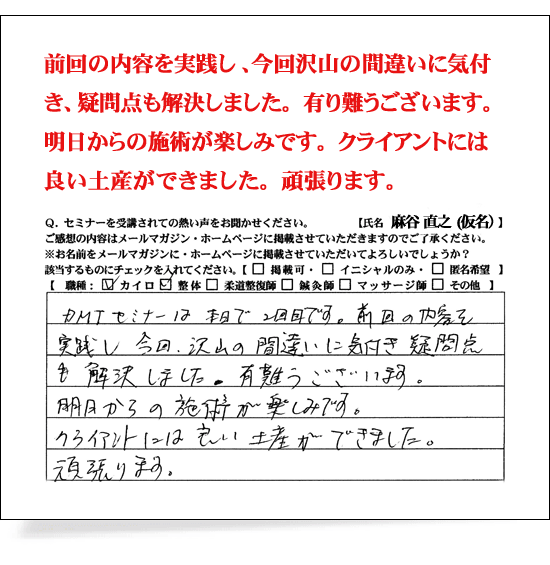 前回の内容を実践し、今回沢山の間違いに気付
き、疑問点も解決しました。有り難うございます。
明日からの施術が楽しみです。クライアントには
良い土産ができました。頑張ります。
Q. セミナーを受講されての熱い声をお聞かせください。 【氏名 麻谷 直之 (仮名) 】
ご感想の内容はメールマガジン・ホームページに掲載させていただきますのでご了承ください。
※お名前をメールマガジンに・ホームページに掲載させていただいてよろしいでしょうか?
該当するものにチェックを入れてください。【 □ 掲載可・ □ イニシャルのみ・ □ 匿名希望 】
【 職種: ☑ カイロ ☑ 整体 □ 柔道整復師 □ 鍼灸師 □ マッサージ師 □ その他 】
DMTセミナーは本日で2回目です。前回の内容を
実践し今回、沢山の間違いに気付き疑問点
も解決しました。有難うございます。
明日からの施術が楽しみです。
クライアントには良い土産ができました。
頑張ります。